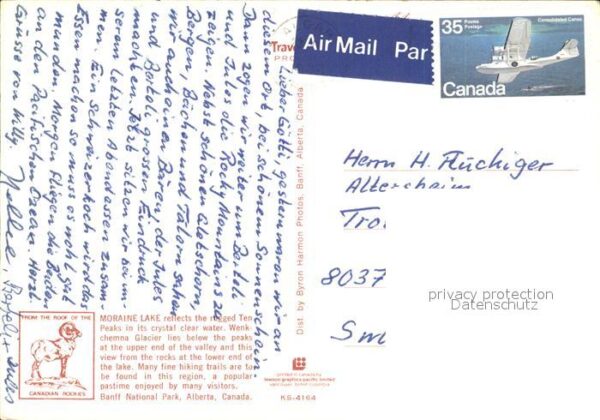 Lieber Götti, gestern waren wir an
diesem Ort, bei schönem Sonnenschein.
Dann zogen wir weiter um Bertoli
und Jules die Rocky Mountains zu
zeigen. Nebst schönen Gletschern,
Bergen, Bächen und Tälern sahen
wir auch einen Bären, der Jules
und Bertoli grossen Eindruck
machten. Jetzt sitzen wir bei un-
serem letzten Abendessen zusam-
men. Ein Schweizerkoch wird das
Essen machen so muss es wohl gut
munden. Morgen fliegen die Beiden
an den Pacific Ocean. Herzl.
Grüsse von Willy
Nellie,
Jules
Trave
PRO
Air Mail Par
35 Postes
Postage
Consolidated Canso
Canada
Herrn H. Flückiger
Altersheim
Tro
8037
Sw
privacy protection
Datenschutz
Dist. by Byron Harmon Photos, Banff, Alberta, Canada
FROM THE ROOF OF THE
CANADIAN ROCKIES
MORAINE LAKE reflects the rugged Ten
Peaks in its crystal clear water. Wenk-
chemna Glacier lies below the peaks
at the upper end of the valley and this
view from the rocks at the lower end of
the lake. Many fine hiking trails are to
be found in this region, a popular
pastime enjoyed by many visitors.
Banff National Park, Alberta, Canada.
printed in canada by
lawson graphics pacific limited
vancouver, british columbia
KS-4164